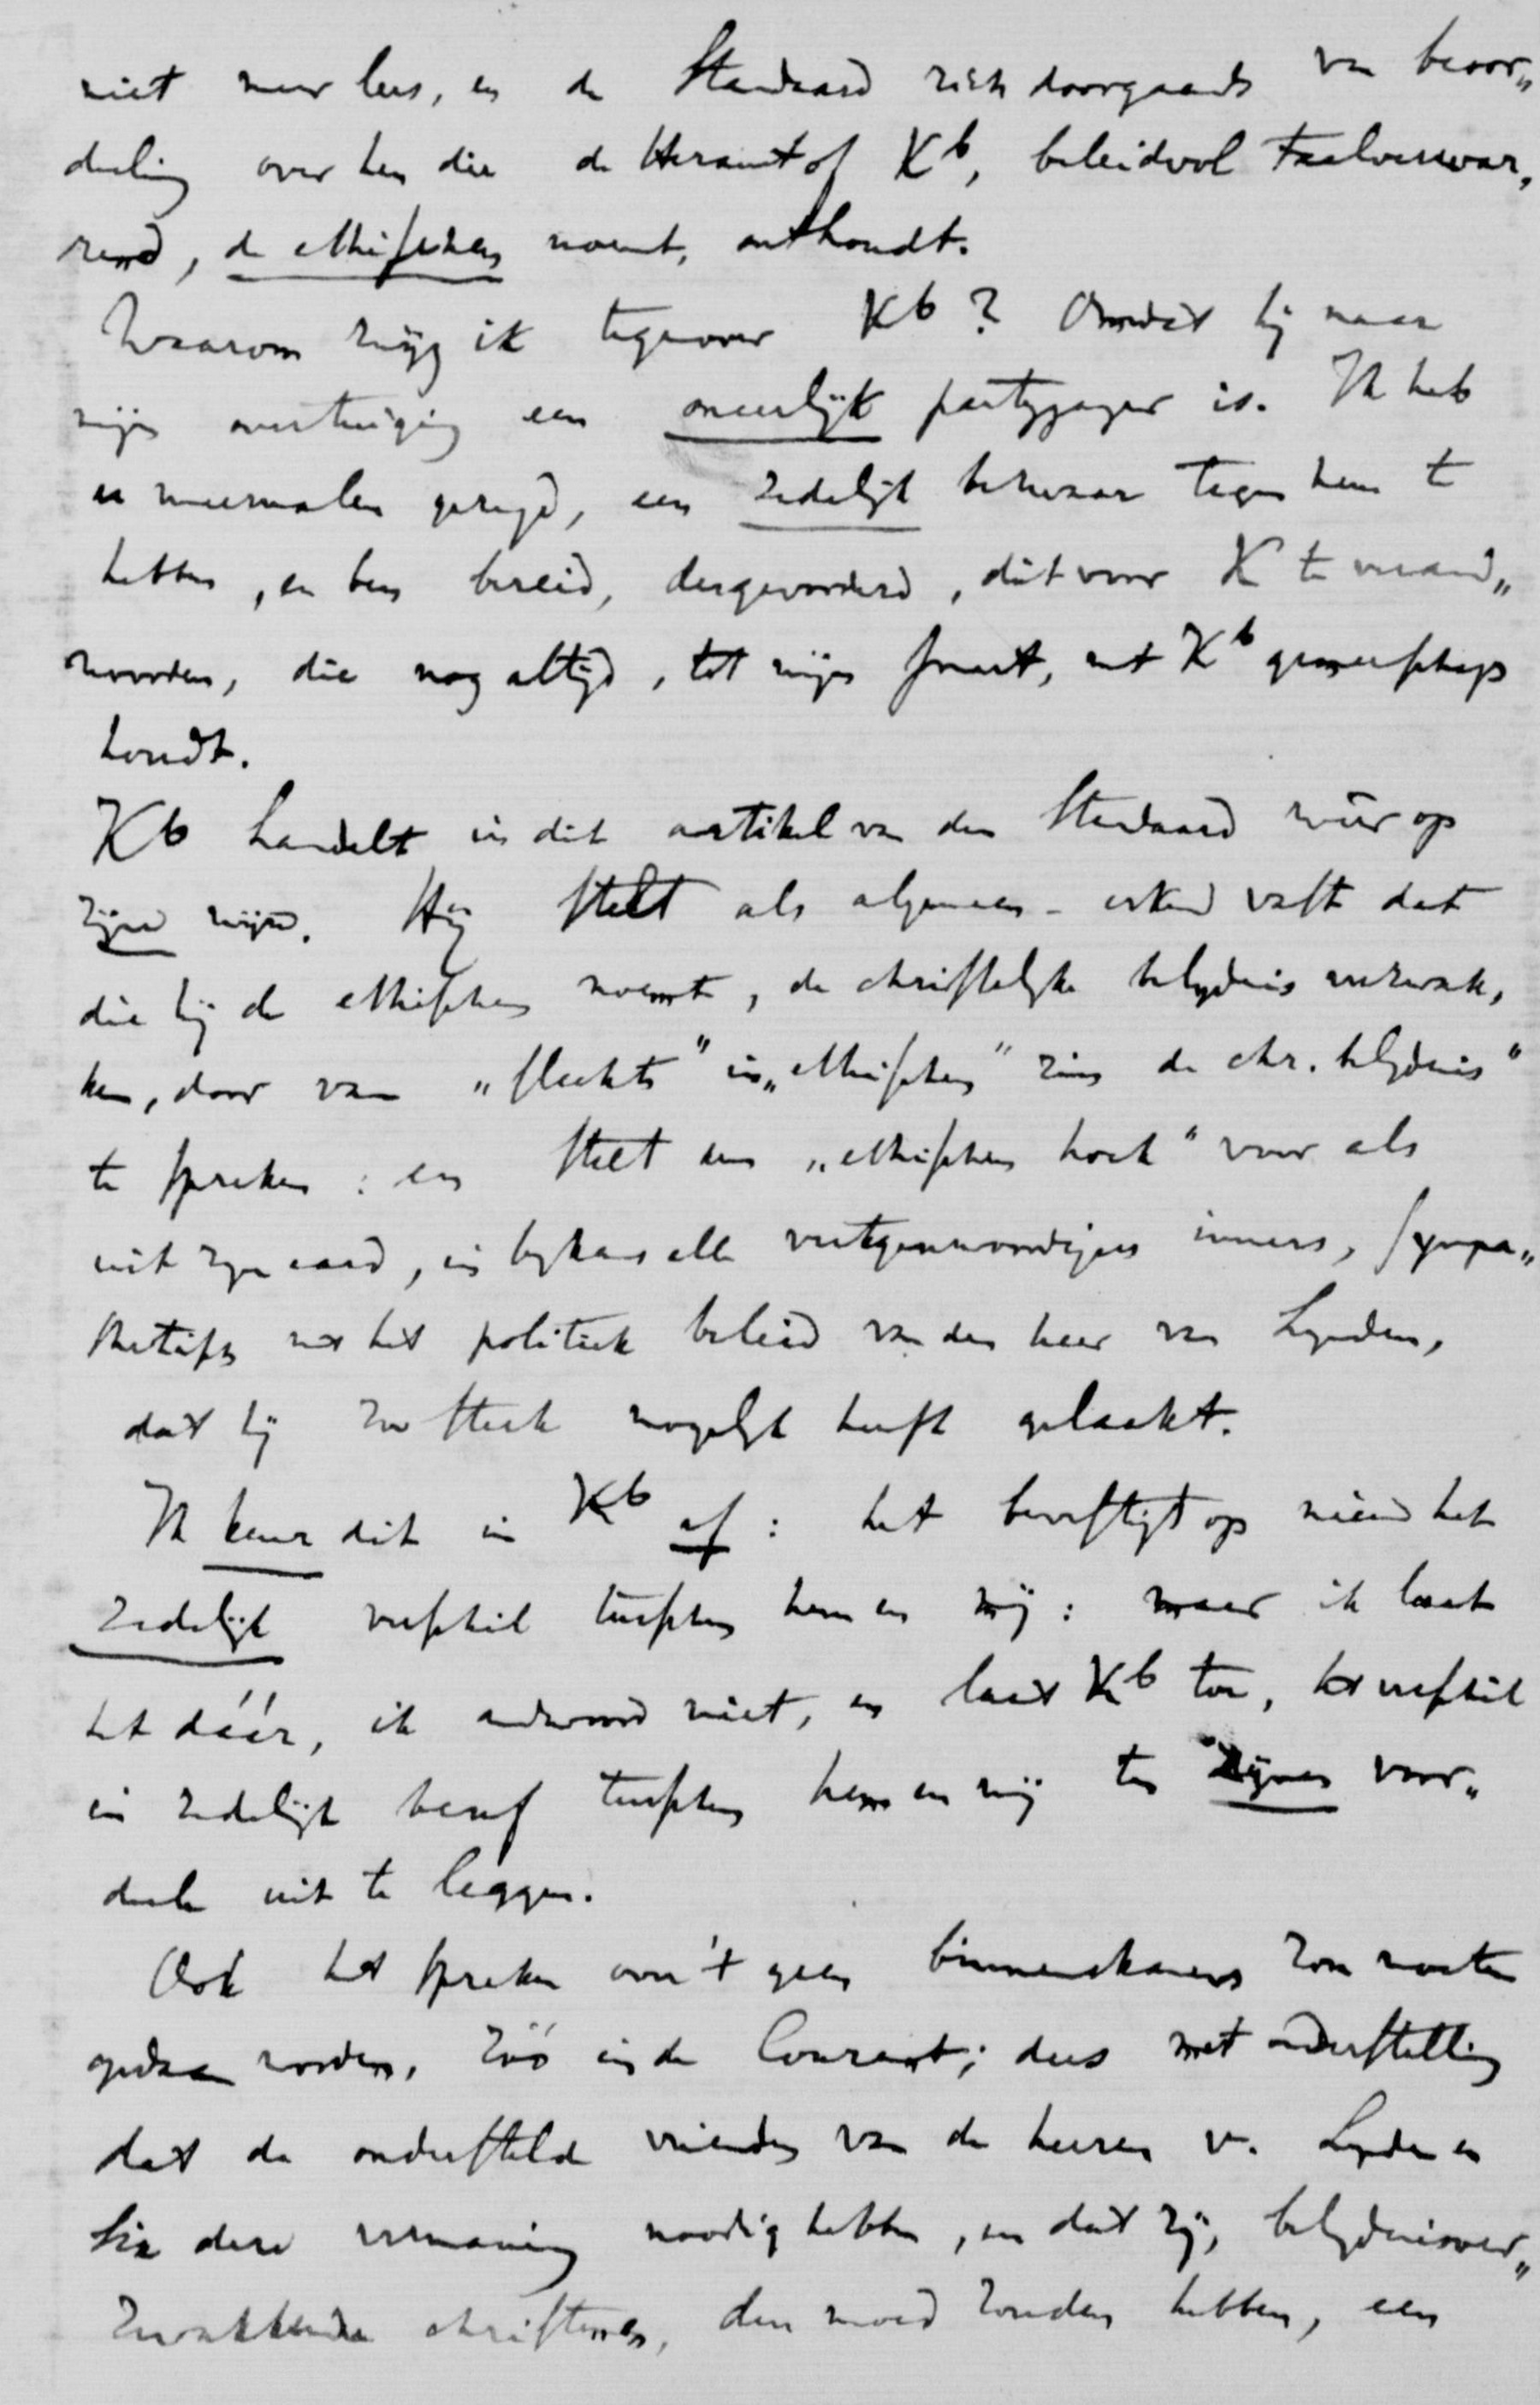 niet meer lees, en de Standaard zich doorgaands van beoor„
deeling over hen die de Heraut of Kb, beleidvol taalverwar,
rend, de ethischen noemt, onthoudt.
Waarom zwijg ik tegenover Kb? Omdat hij naar
mijn overtuiging een oneerlijk partijganger is. Ik heb
u meermalen gezegd, een zedelijk bezwaar tegen hem te
hebben, en ben bereid, desgevorderd, dit voor K te verand„
woorden, die nog altijd, tot mijn smart, met Kb gemeenschap
houdt.
Kb handelt in dit artikel van den Standaard weêr op
zijne wijze. Hij stelt als algemeen-erkend vast dat
die hij de ethischen noemt, de christelijke belijdenis verzwak,
ken, door van „slechts" in „ethischen" zin de chr. belijdenis"
te spreken: en stelt den „ethischen hoek" voor als
uit zijn aard, in bijkans alle vertegenwoordigers immers, sympa„
thetisch met het politiek beleid van den heer van Lynden,
dat hij zoo sterk mogelijk heeft gelaakt.
Ik keur dit in Kb af: het bevestigt op nieuw het
zedelijk verschil tusschen hem en mij: maar ik laat
het dáár, ik andwoord niet, en laat Kb toe, het verschil
in zedelijk besef tusschen hem en mij ten zijnen voor„
deele uit te leggen.
Ook het spreken over 't geen binnenskamers zou moeten
gedaan worden, zóó in de Courant; dus met onderstelling
dat de onderstelde vrienden van de heeren v. Lynden en
Six deze vermaning noodig hebben, en dat zij, belijdenisver„
zwakkende christenen, den moed zouden hebben, een